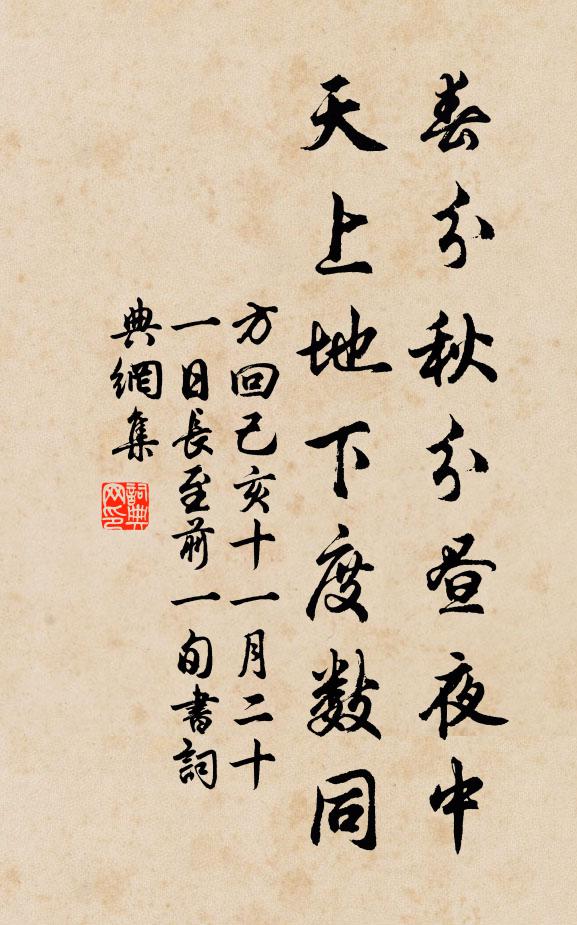 春分秋分昼夜中
天上地下度数同
方回己亥十一月二十
一日長至前一旬書詞
典網集
詞典
网印